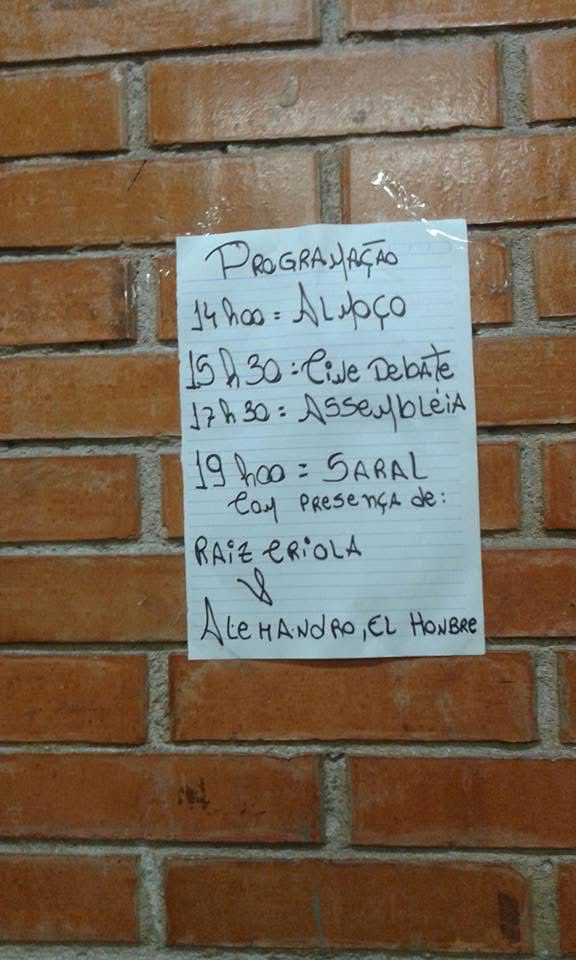 PROGRAMAÇÃO
14h00 = ALMOÇO
15h30 = CINE DEBATE
17h30 = ASSEMBLÉIA
19h00 = SARAL
COM PRESENÇA DE:
RAIZ CRIOLA
&
ALEHANDRO, EL HONBRE